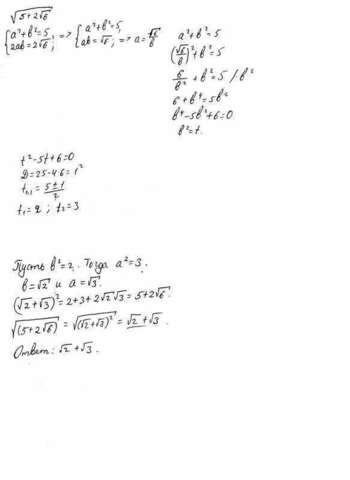 √(5+2√6)
{a²+b²=5, 2ab=2√6; => {a²+b²=5, ab=√6; => a=√6/b
a²+b²=5
(√6/b)²+b²=5
6/b²+b²=5 /b²
6+b⁴=5b²
b⁴-5b²+6=0
b²=t.
t²-5t+6=0
D=25-4·6=1²
t₂,₁=(5±1)/2
t₁=2; t₂=3
Пусть b²=2. Тогда a²=3.
b=√2 и a=√3.
(√2+√3)²=2+3+2√2√3=5+2√6.
√(5+2√6)=√((√2+√3)²)=√2+√3.
Ответ: √2+√3.